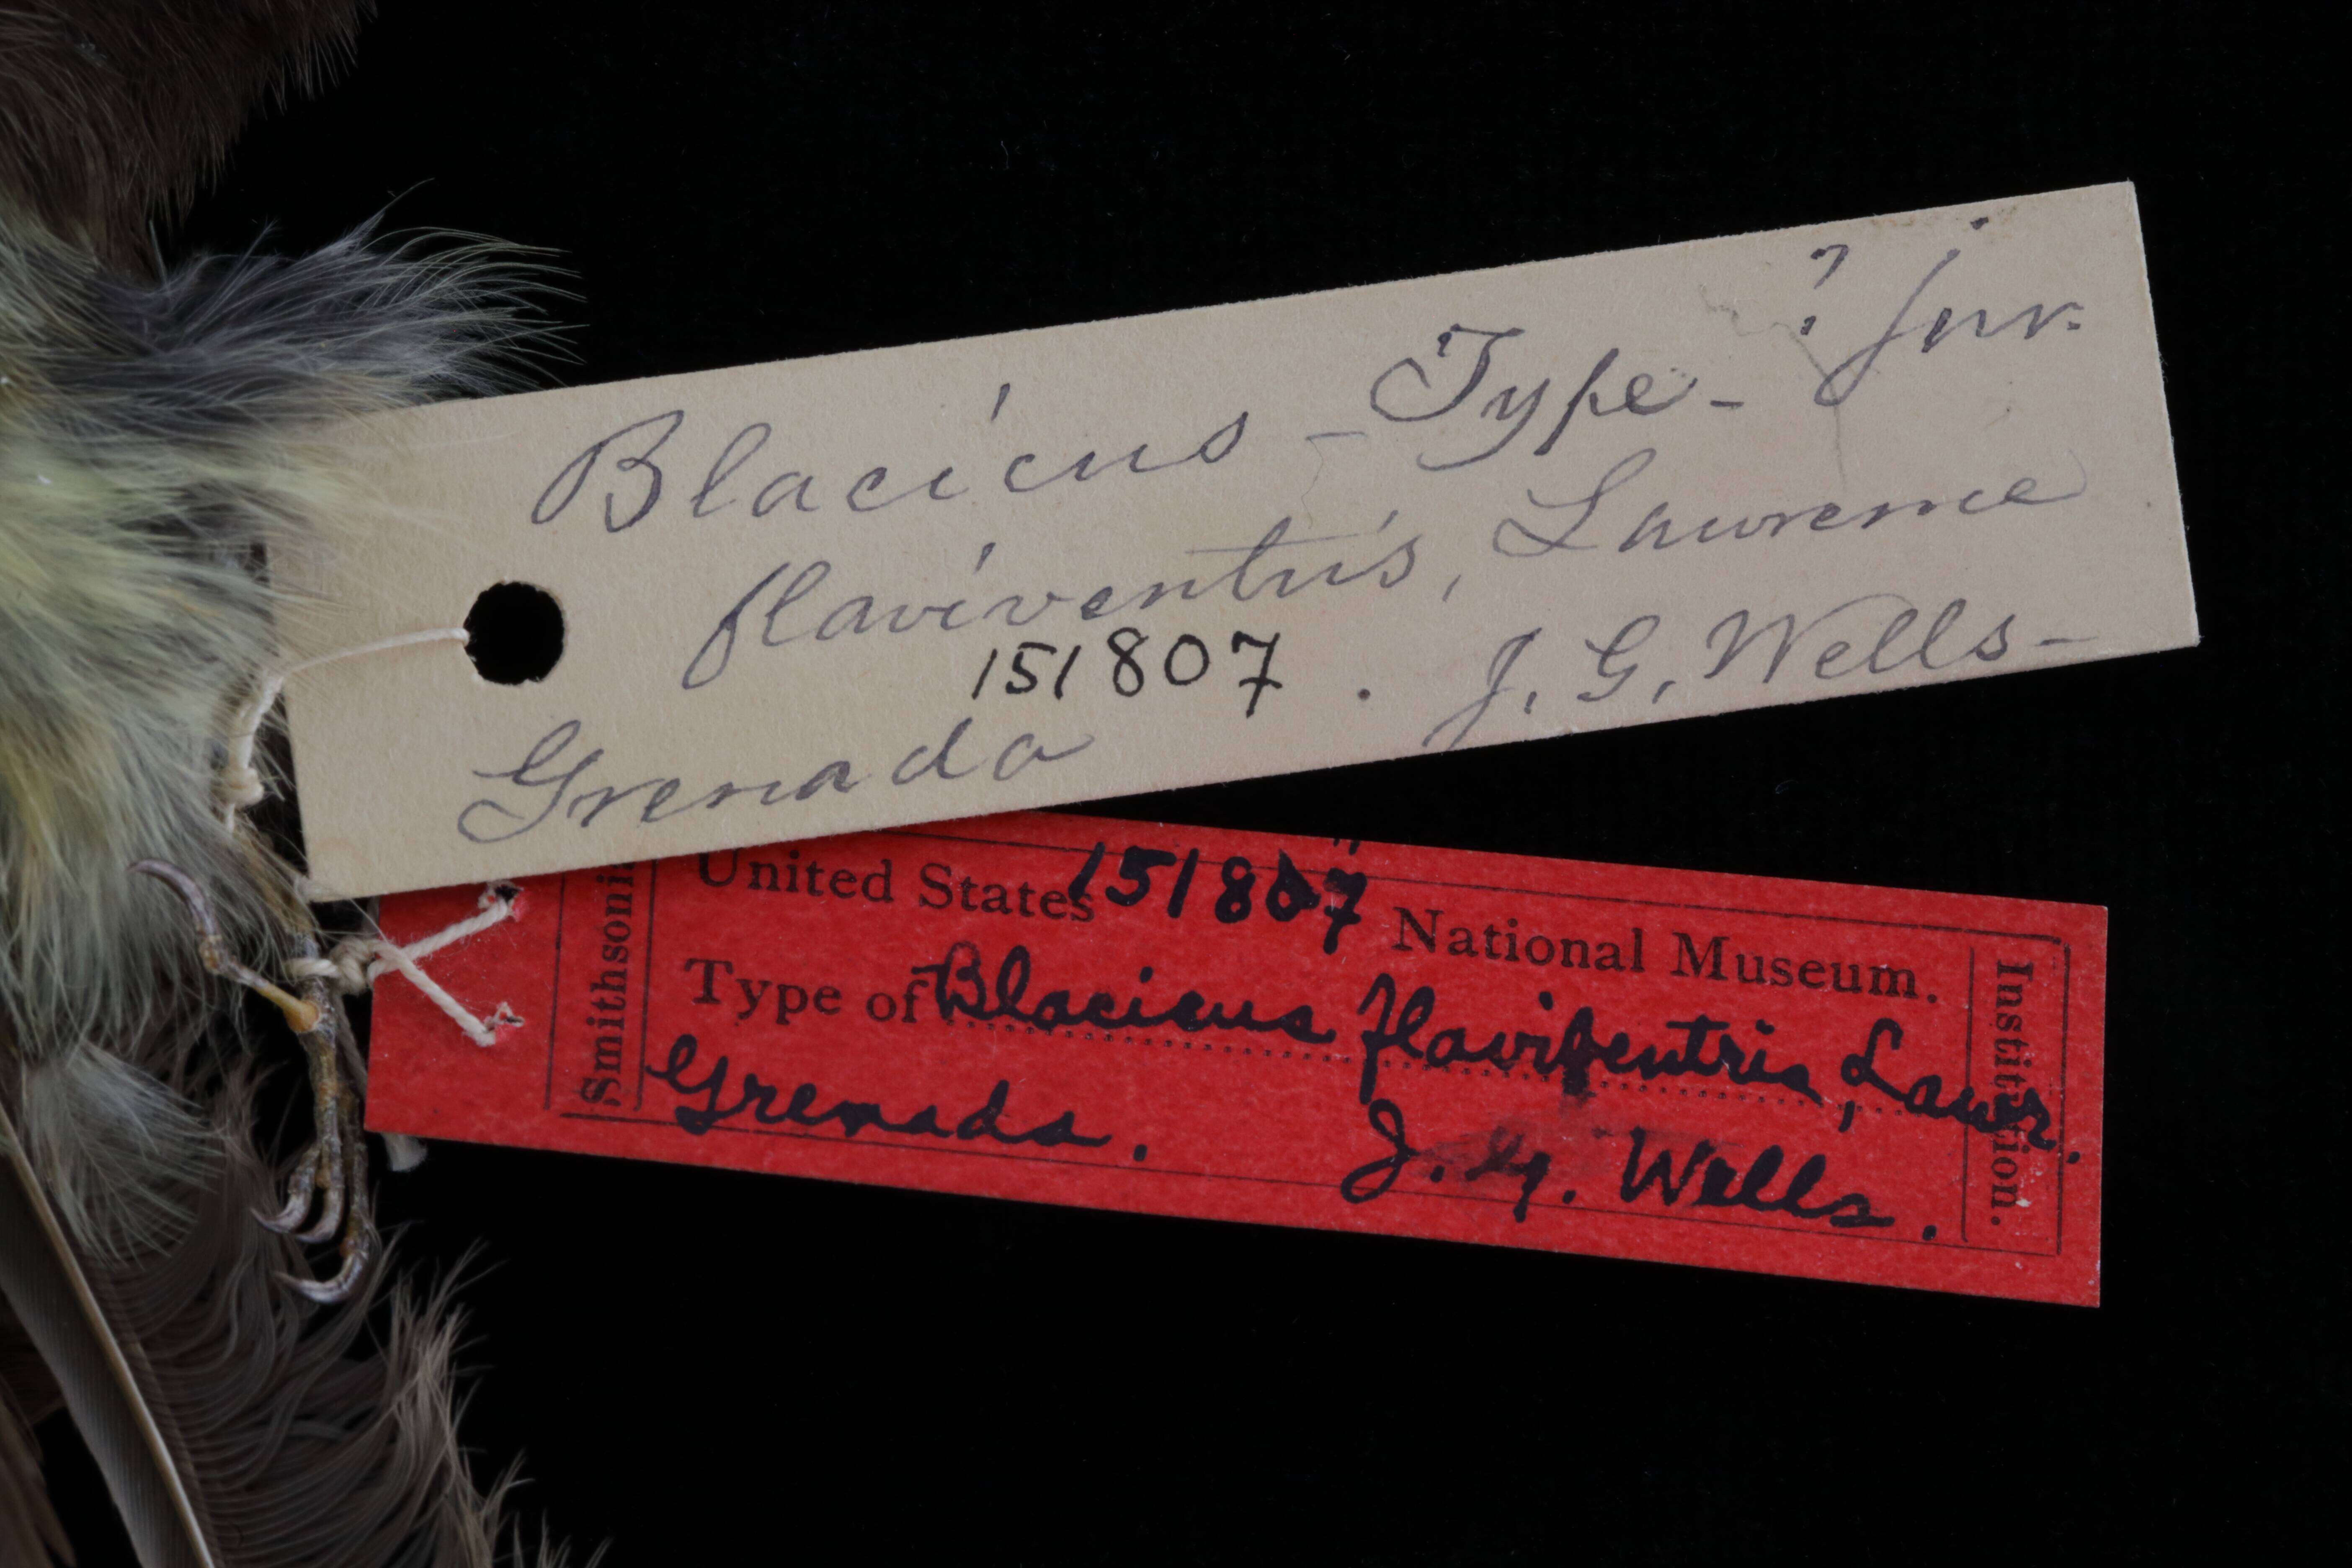 Blacicus - Type - ? juv.
flaviventris, Lawrence
151807 . J. G. Wells -
Grenada
United States 151807 National Museum.
Type of Blacicus flaviventris, Lawr.
Grenada. J. G. Wells.
Smithsoni
Institution.